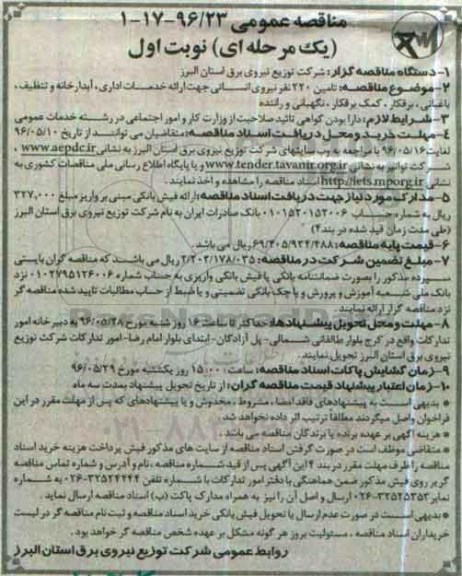 مناقصه عمومی ۹۶/۲۳-۱۷-۱
(یک مرحله ای) نوبت اول
۱- دستگاه مناقصه گزار: شرکت توزیع نیروی برق استان البرز
۲- موضوع مناقصه: تامین ۲۲۰ نفر نیروی انسانی جهت ارائه خدمات اداری، آبدارخانه و تنظیف،
باغبانی، برفکار، کمک برفکار، نگهبانی و راننده
۳- شرایط لازم: دارا بودن گواهی تائید صلاحیت از وزارت کار و امور اجتماعی در رشته خدمات عمومی
۴- مهلت خرید و محل دریافت اسناد مناقصه: متقاضیان می توانند از تاریخ ۹۶/۰۵/۱۰
لغایت ۹۶/۰۵/۱۶ با مراجعه به وب سایتهای شرکت توزیع نیروی برق استان البرز به نشانی www.aepdc.ir ،
شرکت توانیر به نشانی www.tender.tavanir.org.ir و یا پایگاه اطلاع رسانی ملی مناقصات کشوری به
نشانی http://iets.mporg.ir اسناد مناقصه را مشاهده و اخذ نمایند.
۵- مدارک مورد نیاز جهت دریافت اسناد مناقصه: ارائه فیش بانکی مبنی بر واریز مبلغ ۳۲۷,۰۰۰
ریال به شماره حساب ۰۱۰۱۵۲۰۱۵۲۰۰۶ بانک صادرات ایران به نام شرکت توزیع نیروی برق استان البرز
(طی مدت زمان قید شده در بند ۴)
۶- قیمت پایه مناقصه: ۶۹/۴۰۵/۹۳۴/۴۸۸ ریال می باشد.
۷- مبلغ تضمین شرکت در مناقصه: ۲/۲۰۲/۱۷۸/۰۳۵ ریال می باشد که مناقصه گران بایستی
سپرده مذکور را بصورت ضمانتنامه بانکی یا فیش بانکی واریزی به حساب شماره ۰۱۰۲۷۹۵۱۲۶۰۰۶ نزد
بانک ملی شعبه آموزش و پرورش و یا چک بانکی تضمینی و یا ضبط از حساب مطالبات تایید شده مناقصه گر
نزد مناقصه گزار ارائه نمایند.
۸- مهلت و محل تحویل پیشنهادها: حداکثر تا ساعت ۱۶ روز شنبه مورخ ۹۶/۰۵/۲۸ به دبیرخانه امور
تدارکات واقع در کرج بلوار طالقانی شمالی- پل آزادگان- ابتدای بلوار امام رضا- امور تدارکات شرکت توزیع
نیروی برق استان البرز تحویل نمایند.
۹- زمان گشایش پاکات اسناد مناقصه: ساعت ۱۵:۰۰ روز یکشنبه مورخ ۹۶/۰۵/۲۹
۱۰- زمان اعتبار پیشنهاد قیمت مناقصه گران: از تاریخ تحویل پیشنهاد بمدت سه ماه
* بدیهی است به پیشنهادهای فاقد امضا، مشروط، مخدوش و یا پیشنهادهای که پس از مهلت مقرر در این
فراخوان واصل میگردند مطلقاً ترتیب اثر داده نخواهد شد.
* هزینه آگهی بر عهده برنده یا برندگان مناقصه می باشد.
* متقاضی موظف است در صورت گرفتن اسناد مناقصه از سایت های مذکور فیش پرداخت هزینه خرید اسناد
مناقصه را ظرف مهلت مقرر در بند ۴ این آگهی پس از قید شماره مناقصه، نام و آدرس و شماره تماس مناقصه
گر بر روی فیش مذکور ضمن هماهنگی با دفتر امور تدارکات با شماره تلفن ۳۲۵۲۴۲۴۴-۰۲۶ به شماره
نمابر ۳۲۵۲۵۳۵۳-۰۲۶ ارسال و اصل آن را نیز به همراه مدارک پاکت (ب) اسناد مناقصه ارسال نماید.
* بدیهی است در صورت عدم ارسال یا تحویل فیش بانکی خرید اسناد مناقصه و ثبت نام مناقصه گر در لیست
خریداران اسناد مناقصه، مسئولیت بروز هر گونه مشکل بر عهده شخص مناقصه گر خواهد بود.
روابط عمومی شرکت توزیع نیروی برق استان البرز